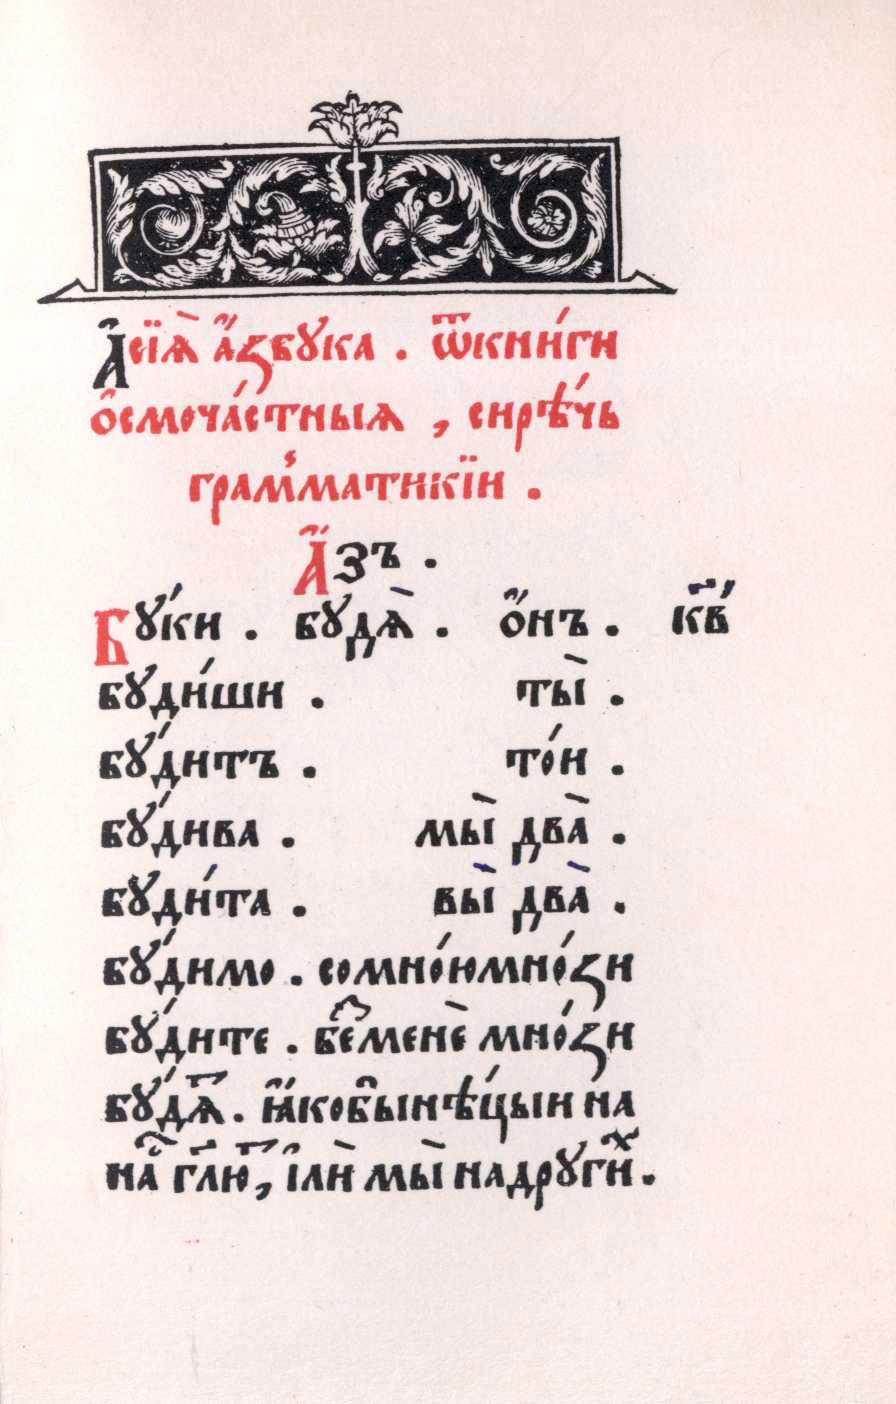 А҆сїѧ̀ а҆́збꙋка . ѿкни́ги
ѻ҆смоча́стныѧ , сирѣ́чь
грам̾матикїи .
А҆́зъ .
Бꙋ́ки . бꙋдѧ̀ . ѻ҆́нъ . к҃в
бꙋди́ши . ты̀ .
бꙋ́дитъ . то́и .
бꙋ́дива . мы̀ два̀ .
бꙋди́та . вы̀ два̀ .
бꙋ́димо . сомно́юмно́зи
бꙋ́дите . беⷥ҇менѐ мно́зи
бꙋ́дѧⷮ . ꙗ҆́кобыⷩ҇ѣ́цыи на
наⷭ҇ гл҃юⷮ , і҆лѝ мы̀ надрꙋги́ⷯ .